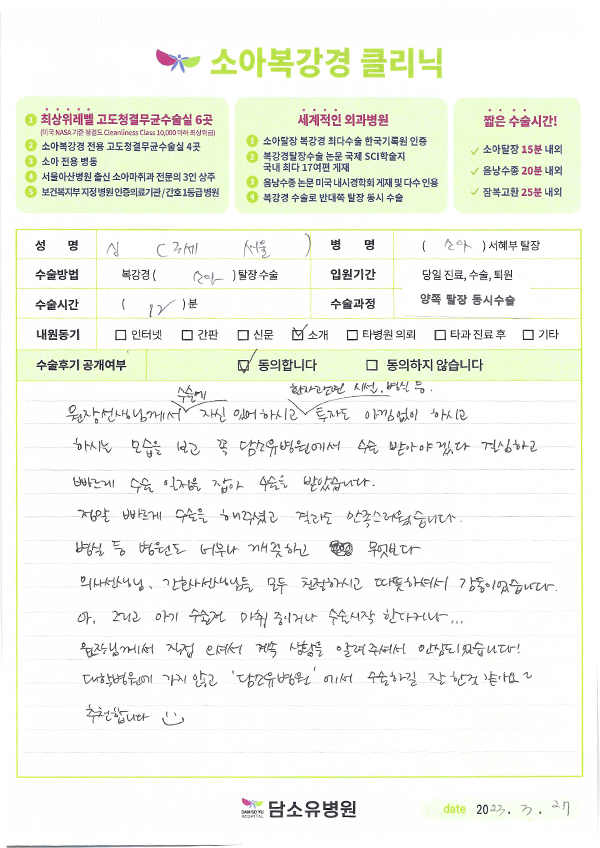 소아복강경 클리닉
1 최상위레벨 고도청결무균수술실 6곳
(미국 NASA 기준 청정도 Cleanliness Class 10,000 이하 최상위급)
2 소아복강경 전용 고도청결무균수술실 4곳
3 소아 전용 병동
4 서울아산병원 출신 소아마취과 전문의 3인 상주
5 보건복지부 지정 병원 인증의료기관 / 간호 1등급 병원
세계적인 외과병원
1 소아탈장 복강경 최다수술 한국기록원 인증
2 복강경탈장수술 논문 국제 SCI학술지
국내 최다 17여편 게재
3 음낭수종 논문 미국 내시경학회 게재 및 다수 인용
4 복강경 수술로 반대쪽 탈장 동시 수술
짧은 수술시간!
✓ 소아탈장 15분 내외
✓ 음낭수종 20분 내외
✓ 잠복고환 25분 내외
성 명 심 ( 세 서울 ) 병 명 ( 소아 ) 서혜부 탈장
수술방법 복강경 ( 소아 ) 탈장 수술 입원기간 당일 진료, 수술, 퇴원
수술시간 ( 12 ) 분 수술과정 양쪽 탈장 동시수술
내원동기 □ 인터넷 □ 간판 □ 신문 ☑ 소개 □ 타병원 의뢰 □ 타과 진료 후 □ 기타
수술후기 공개여부 ☑ 동의합니다 □ 동의하지 않습니다
수술에 환자관련된 시설, 병실 등.
원장선생님께서 자신 있어하시고 투자도 아낌없이 하시고
하시는 모습을 보고 꼭 담소유병원에서 수술 받아야겠다 결심하고
빠르게 수술 일정을 잡아 수술을 받았습니다.
정말 빠르게 수술을 해주셨고 결과도 만족스러웠습니다.
병실 등 병원도 너무나 깨끗하고 무엇보다
의사선생님, 간호사선생님들 모두 친절하시고 따뜻하셔서 감동이었습니다.
아, 그리고 아기 수술전 마취 중이거나 수술시작 한다거나...
원장님께서 직접 오셔서 계속 상황을 알려주셔서 안심되었습니다!
대학병원에 가지않고 '담소유병원' 에서 수술하길 잘 한것 같아요~
추천합니다
DAMSOYU HOSPITAL 담소유병원
date 2023. 3. 27